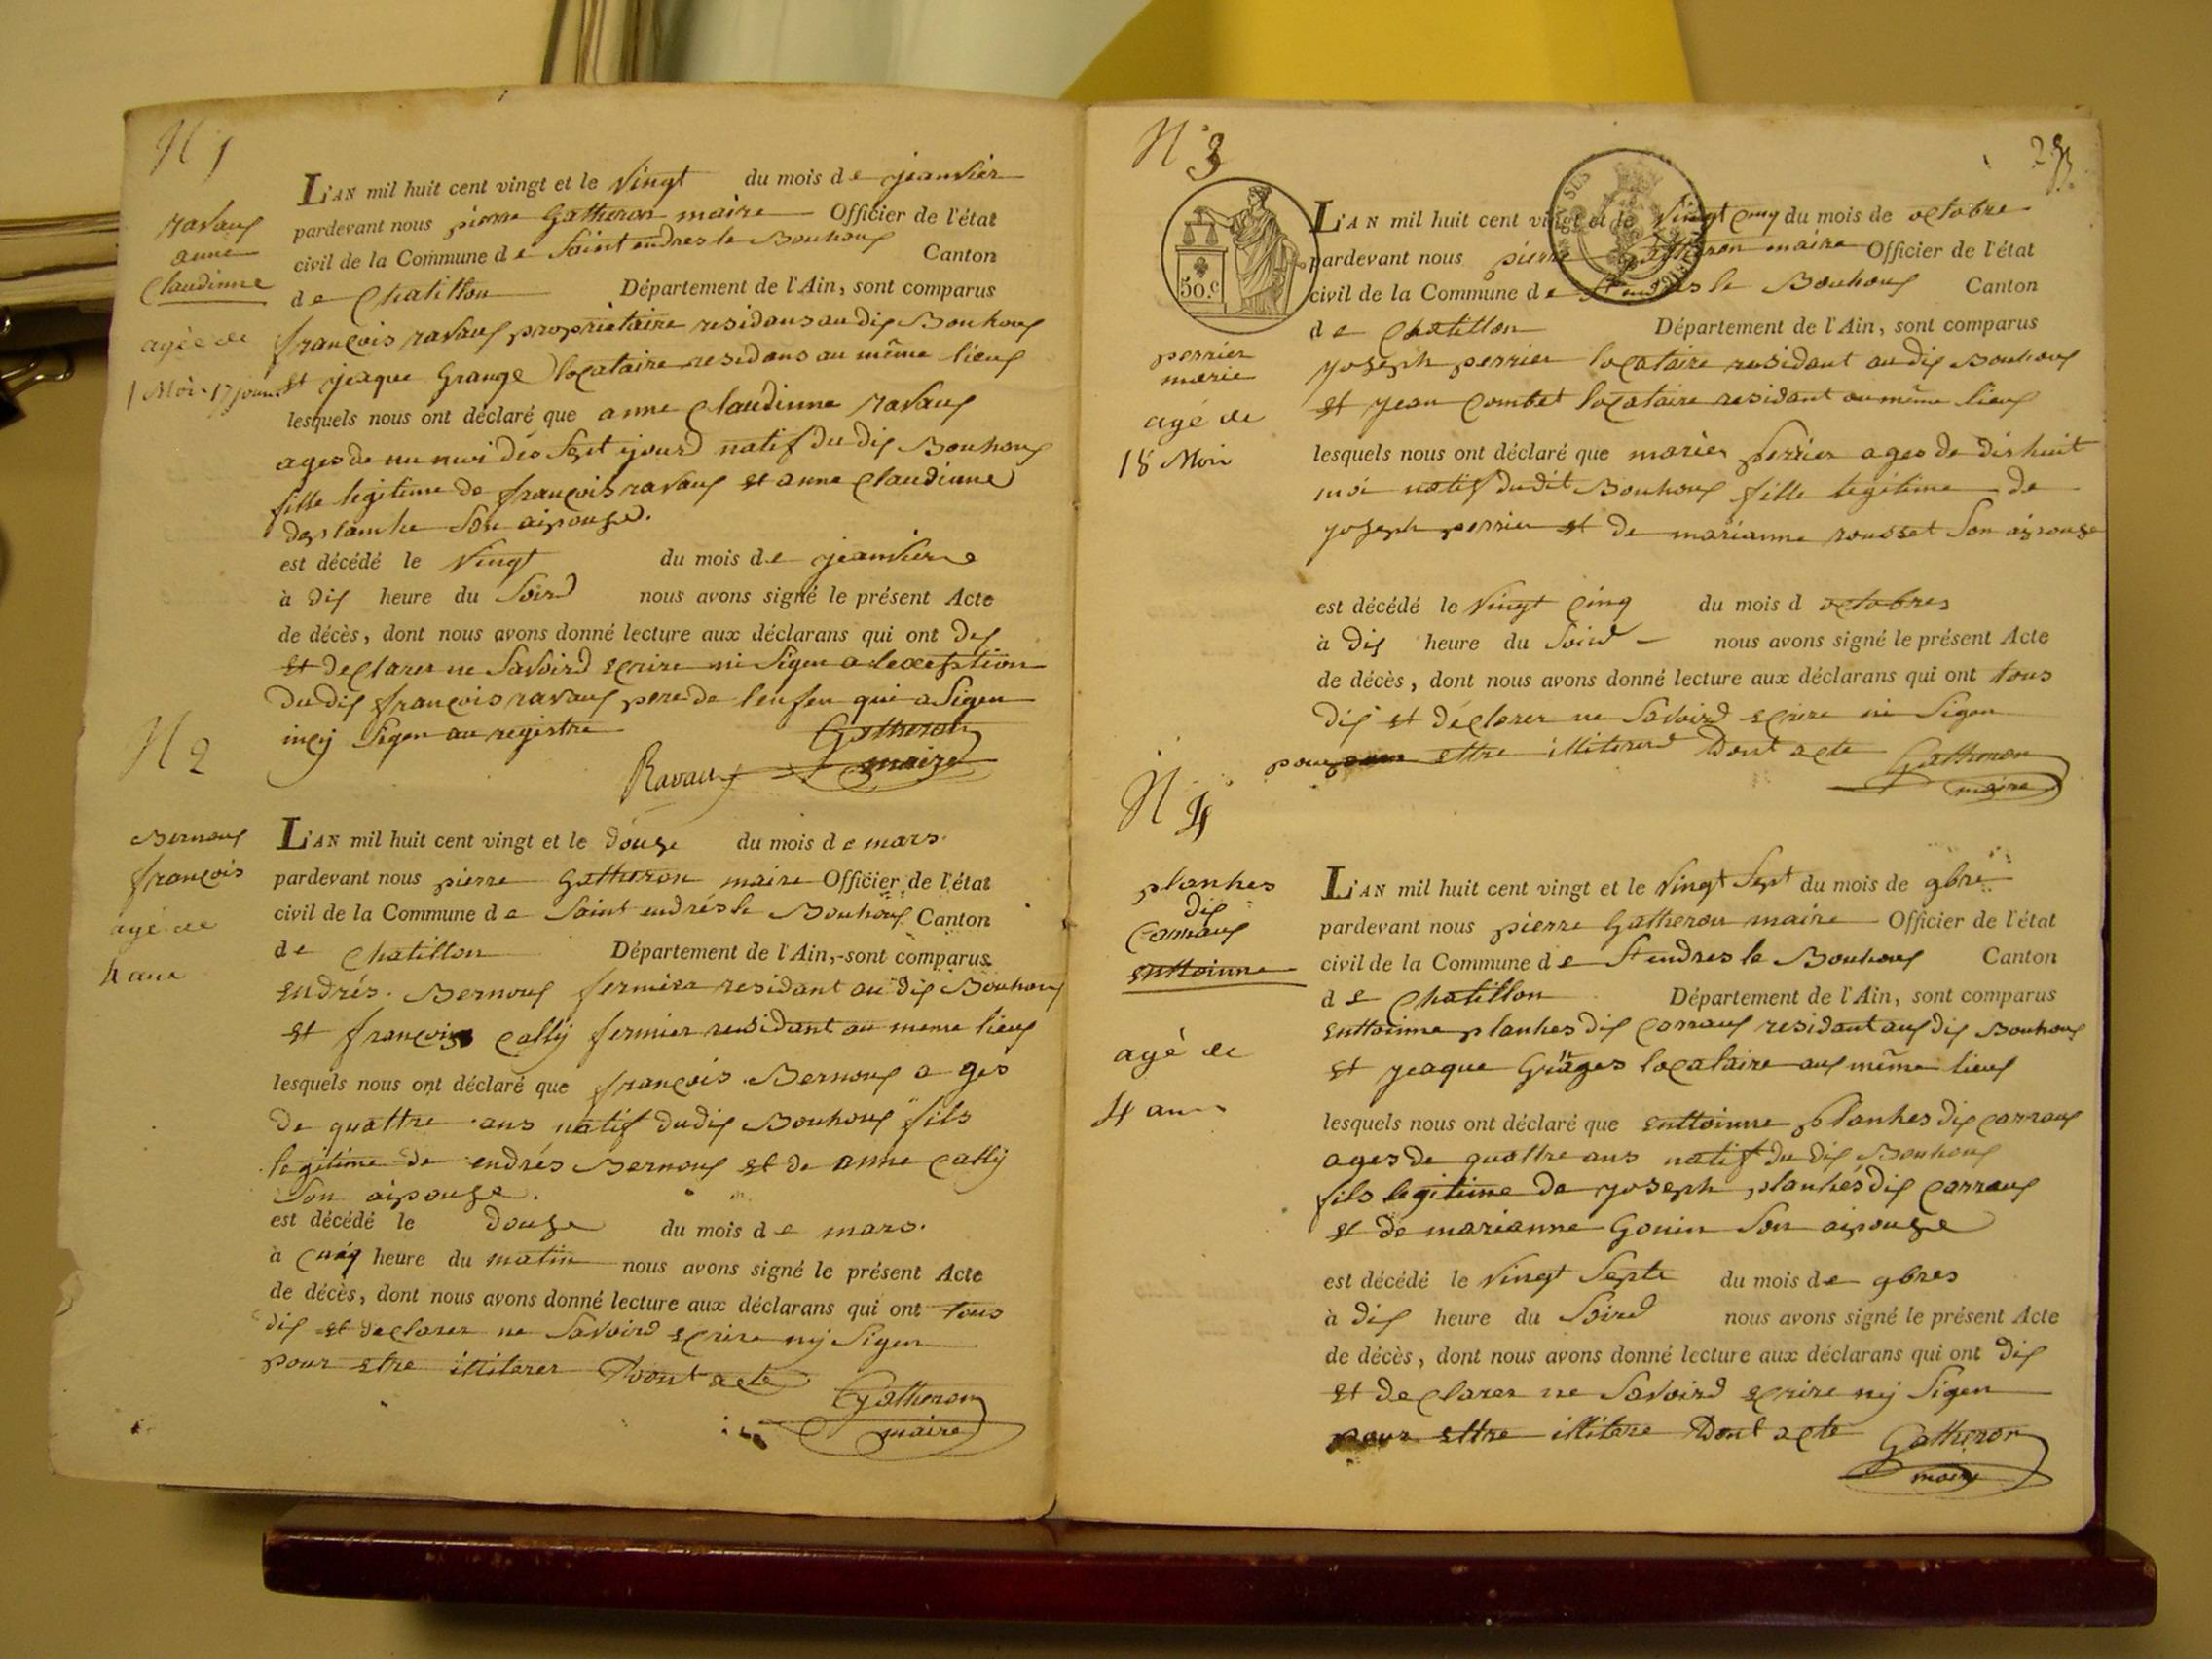 N 1
ravaux
anne
Claudinne
agée de
1 Mois 17 jours
L'AN mil huit cent vingt et le vingt du mois de jeanvier
pardevant nous pierre Gatheron maire Officier de l'état
civil de la Commune de Saint endres le Bouhoux Canton
de Chatillon Département de l'Ain, sont comparus
françois ravaux propriétaire residans au dix Bouhoux
et jeaque Grange locataire residans au même lieux
lesquels nous ont déclaré que anne Claudinne ravaux
ages de un moi dés Sept ĳourd natif du dix Bouhoux
fille legitime de françois ravaux et anne Claudinne
desplanhe Son aipouse.
est décédé le vingt du mois de jeanviere
à dix heure du Soird nous avons signé le présent Acte
de décès, dont nous avons donné lecture aux déclarans qui ont dix
et declarer ne Savoird ecrire ni Sigen a lexception
du dix françois ravaux pere de lenfen qui a Sigen
Sigen au registre
Gatheron
Ravaux maire
N 2
Bernoux
françois
agé de
4 ans
L'AN mil huit cent vingt et le douze du mois de mars
pardevant nous pierre Gatheron maire Officier de l'état
civil de la Commune de Saint endrés le Bouhoux Canton
de Chatillon Département de l'Ain, sont comparus
endrés Bernoux fermier residant au dix Bouhoux
et françois Cally fermier residant au meme lieux
lesquels nous ont déclaré que françois Bernoux a gés
de quattre ans natif du dix Bouhoux fils
legitime de endrés Bernoux et de anne Cally
Son aipouse.
est décédé le douze du mois de mars.
à Cinq heure du matin nous avons signé le présent Acte
de décès, dont nous avons donné lecture aux déclarans qui ont tous
dix et declarer ne Savoird ecrire nij Sigen
pour etre illiterer Dont acte
Gatheron
maire
N 3
50.c
perrier
marie
agé de
18 Moi
L'AN mil huit cent vingt et le vingt Cinq du mois de octobre
pardevant nous pierre Gatheron maire Officier de l'état
civil de la Commune de St endres le Bouhoux Canton
de Chatillon Département de l'Ain, sont comparus
yoseph perrier locataire residant au dix Bouhoux
et yean Combet locataire residant au même lieux
lesquels nous ont déclaré que marier perrier ages de dix huit
moi natif du dit Bouhoux fille legitime de
yoseph perrier et de marianne rousset Son aipouse
est décédé le vingt Cinq du mois d octobres
à dix heure du Soird nous avons signé le présent Acte
de décès, dont nous avons donné lecture aux déclarans qui ont tous
dix et déclarer ne Savoird ecrire ni Sigen
pour ettre illiterer Dont acte Gatheron
maire
N 4
planhes
dix
Carraux
enttoinne
agé de
4 ans
L'AN mil huit cent vingt et le vingt Sept du mois de 9bre
pardevant nous pierre Gatheron maire Officier de l'état
civil de la Commune de St endres le Bouhoux Canton
de Chatillon Département de l'Ain, sont comparus
enttoinne planhes dix Carraux residant aux dix Bouhoux
et yeaque Grages locataire aux même lieux
lesquels nous ont déclaré que enttoinne planhes dix Carraux
ages de quattre ans natif du dix Bouhoux
fils legitime de yoseph planhés dix Carraux
et de marianne Gonin Son aipouse
est décédé le vingt Septe du mois de 9bres
à dix heure du Soird nous avons signé le présent Acte
de décès, dont nous avons donné lecture aux déclarans qui ont dix
et declarer ne Savoird ecrire nij Sigen
pour ettre illitere Dont acte Gatheron
maire